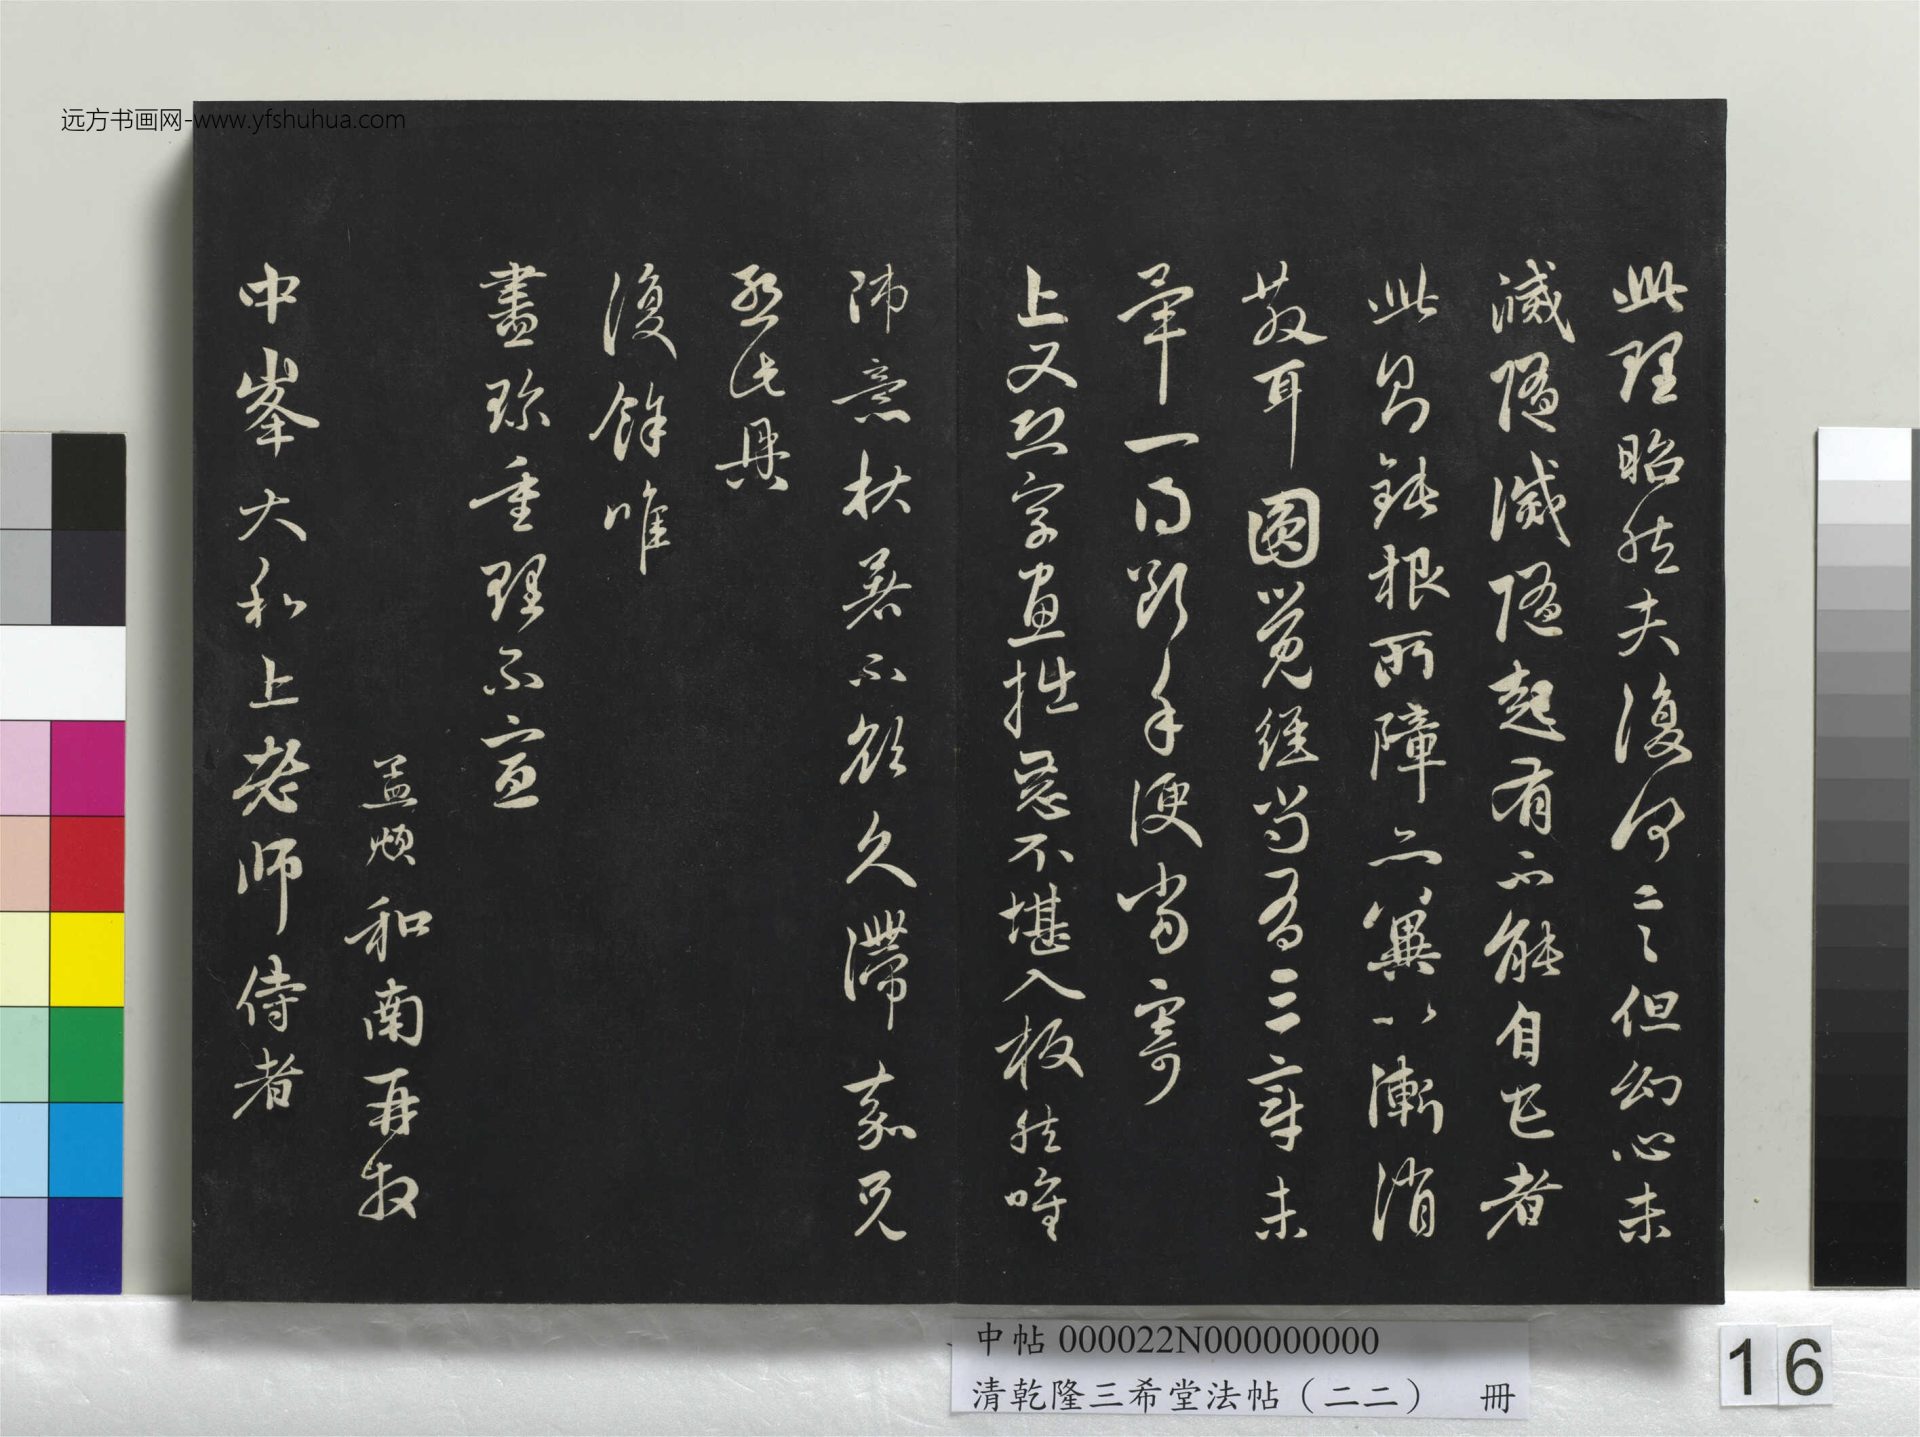 远方书画网-www.yfshuhua.com
此理昭然夫復何言但幻心未
滅隨滅隨起有不能自已者
此昌鈍根所障亦冀以漸消
散耳圓覺經尚有三章未
畢一得斷手便當寄
上又恐字畫拙惡不堪入板然唯
師意杖著不敢久滯袁兄
至此具
復餘唯
盡珎重理不宣
孟頫和南再拜
中峯大和上老師侍者
中帖000022N000000000
清乾隆三希堂法帖（二二） 冊
16